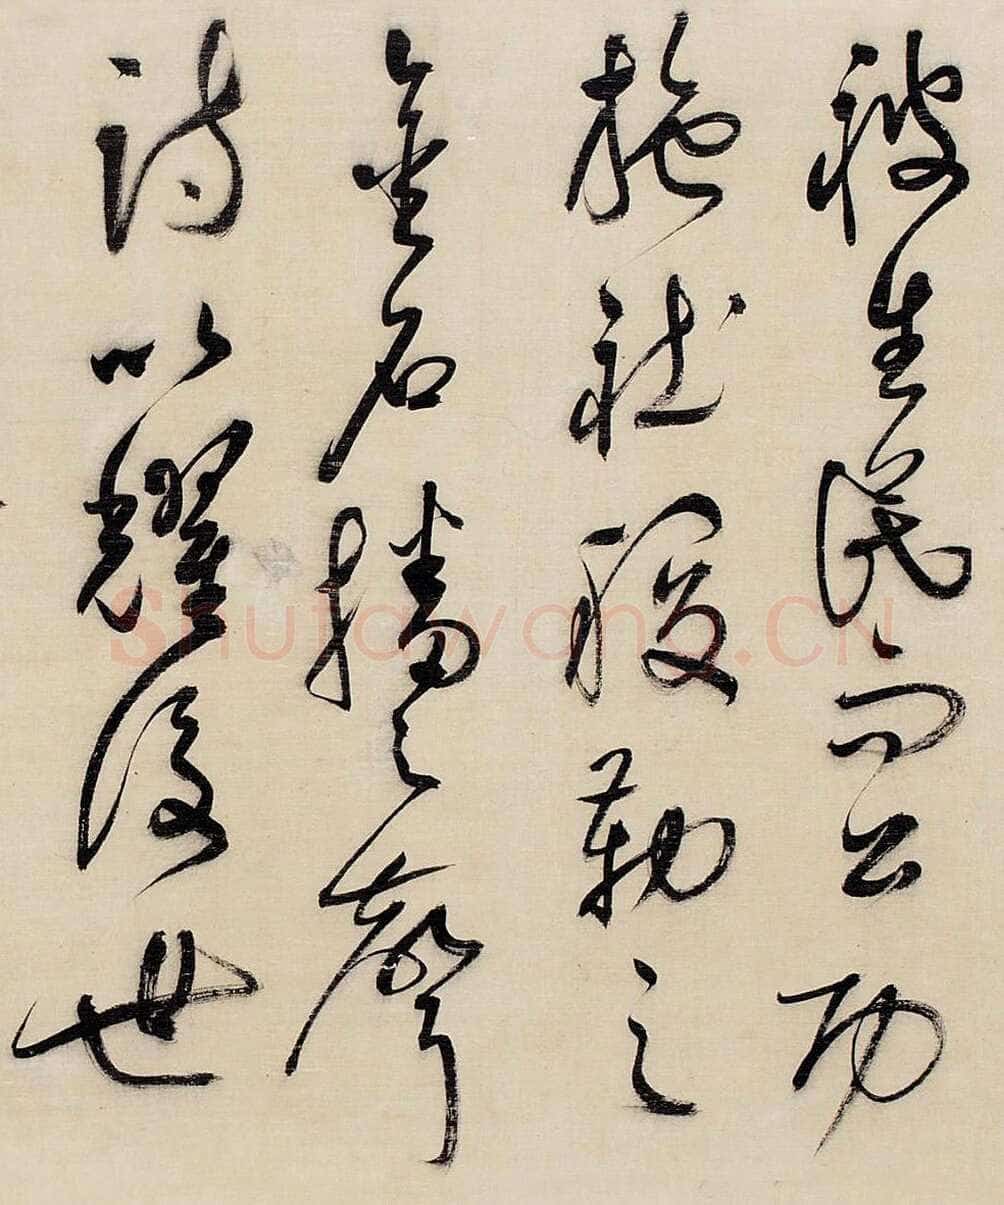 被生民而公功
施社稷勒之
金石播之聲
詩以耀後世
Shufawang.CN